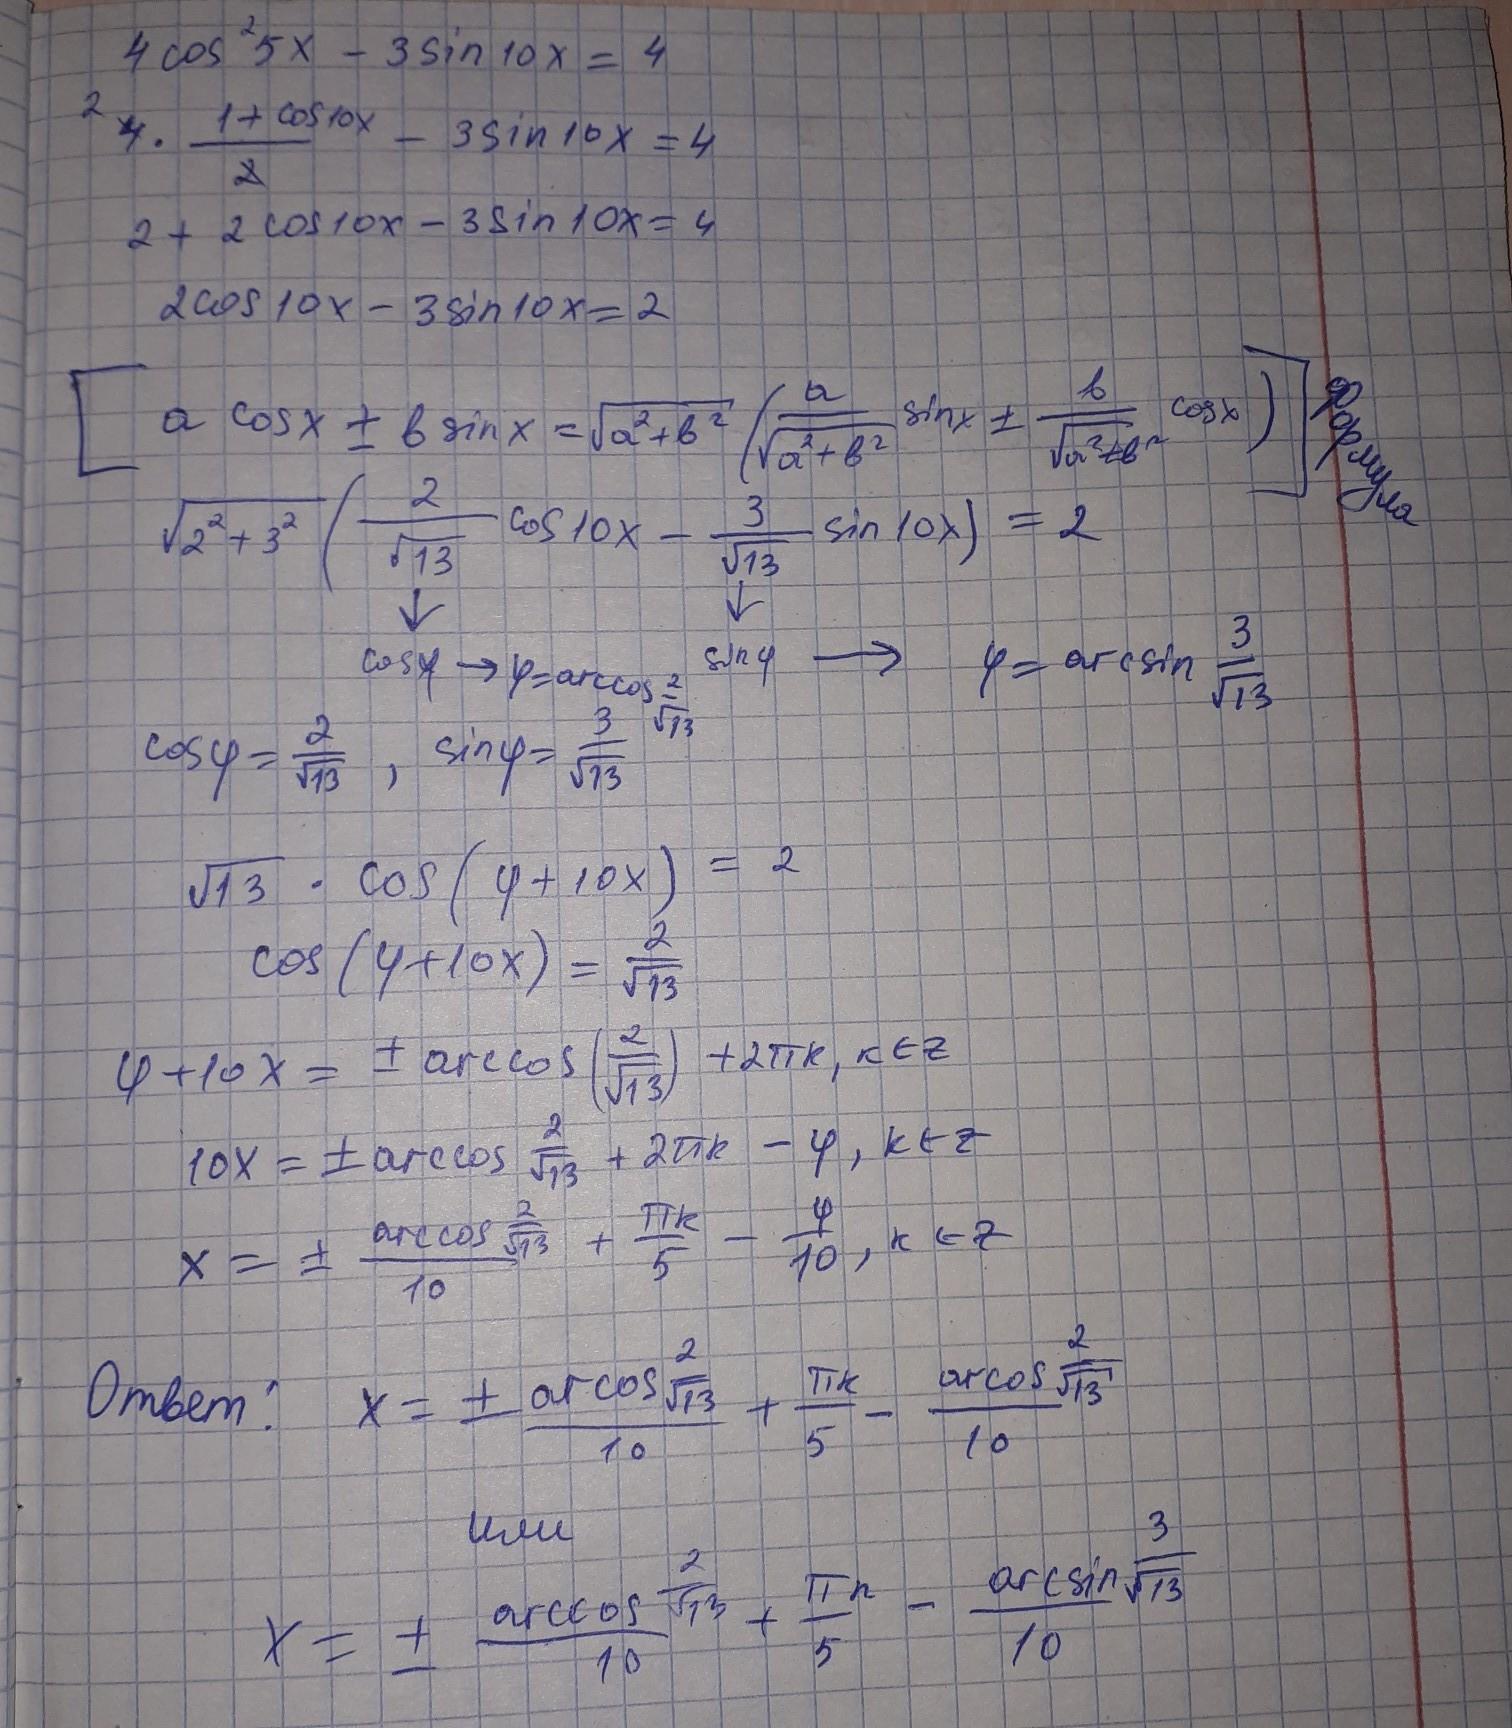 4cos²5x - 3sin10x = 4
2 4 · (1 + cos10x)/2 - 3sin10x = 4
2 + 2cos10x - 3sin10x = 4
2cos10x - 3sin10x = 2
[a cosx ± b sinx = √(a²+b²) (a/√(a²+b²) sinx ± b/√(a²+b²) cosx)] формула
√(2²+3²) (2/√13 cos10x - 3/√13 sin10x) = 2
↓ ↓
cosφ → φ = arccos 2/√13 sinφ → φ = arcsin 3/√13
cosφ = 2/√13, sinφ = 3/√13
√13 · cos(φ + 10x) = 2
cos(φ + 10x) = 2/√13
φ + 10x = ± arccos(2/√13) + 2πk, k ∈ Z
10x = ± arccos 2/√13 + 2πk - φ, k ∈ Z
x = ± (arccos 2/√13)/10 + πk/5 - φ/10, k ∈ Z
Ответ: x = ± (arcos 2/√13)/10 + πk/5 - (arcos 2/√13)/10
или
x = ± (arccos 2/√13)/10 + πn/5 - (arcsin 3/√13)/10